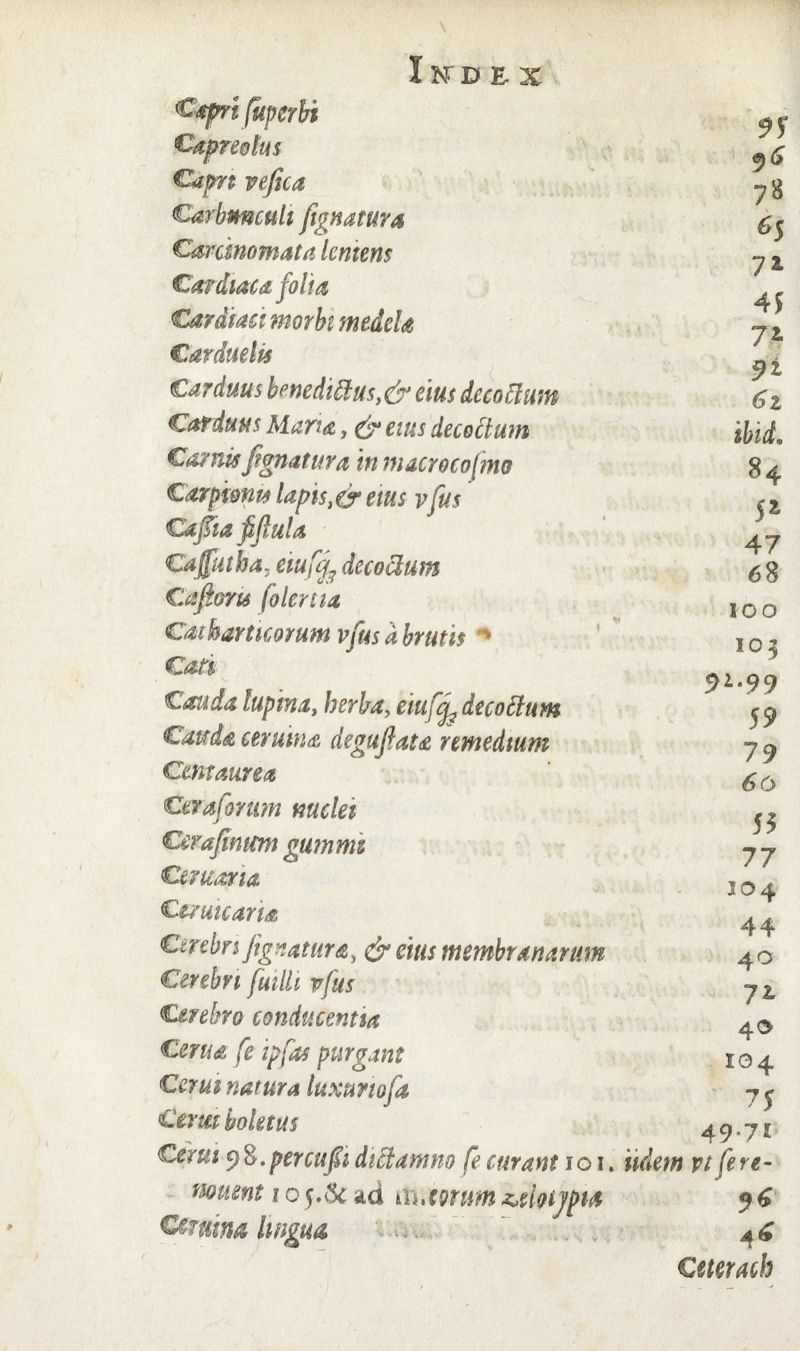 INDEX
Capri ſuperbi 95
Capreolus 96
Capri veſica 78
Carbunculi ſignatura 65
Carcinomata leniens 72
Cardiaca folia 45
Cardiaci morbi medela 72
Carduelis 92
Carduus benedictus, & eius decoctum 62
Carduus Mariæ, & eius decoctum ibid.
Carnis ſignatura in macrocoſmo 84
Carpionis lapis, & eius vſus 52
Caſſia fiſtula 47
Caſſutha, eiuſq; decoctum 68
Caſtoris ſolertia 100
Catharticorum vſus à brutis 103
Cati 92.99
Cauda lupina, herba, eiuſq; decoctum 59
Caudæ ceruinæ deguſtatæ remedium 79
Centaurea 60
Ceraſorum nuclei 53
Ceraſinum gummi 77
Ceruaria 104
Ceruicariæ 44
Cerebri ſignaturæ, & eius membranarum 40
Cerebri ſuilli vſus 72
Cerebro conducentia 40
Ceruæ ſe ipſas purgant 104
Cerui natura luxurioſa 75
Cerui boletus 49.71
Cerui 98. percuſſi dictamno ſe curant 101. iidem vt ſe re-
nouent 105. & ad eorum zelotypia 96
Ceruina lingua 46
Ceterach